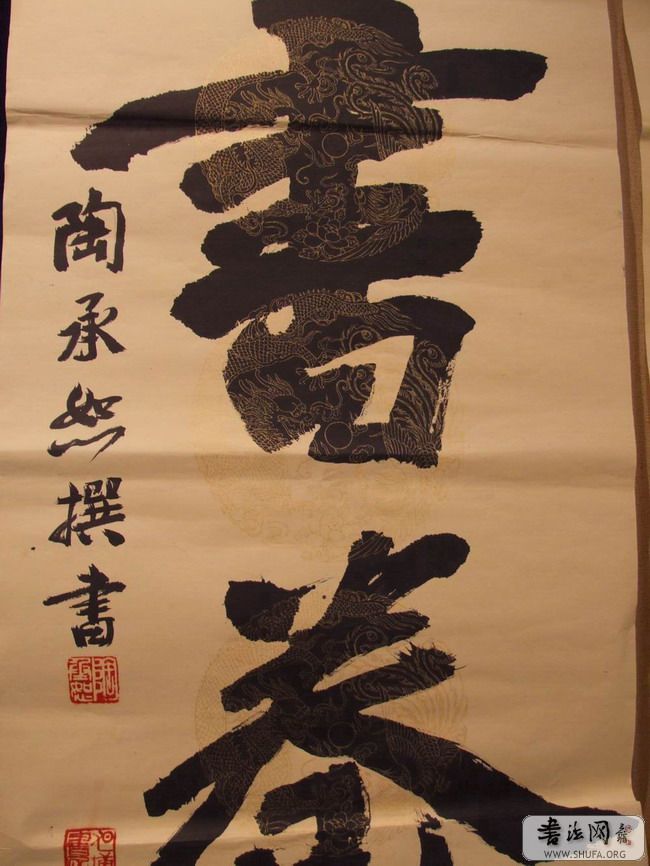 書卷
陶承恕撰書
陶承恕
書法网
WWW.SHUFA.ORG